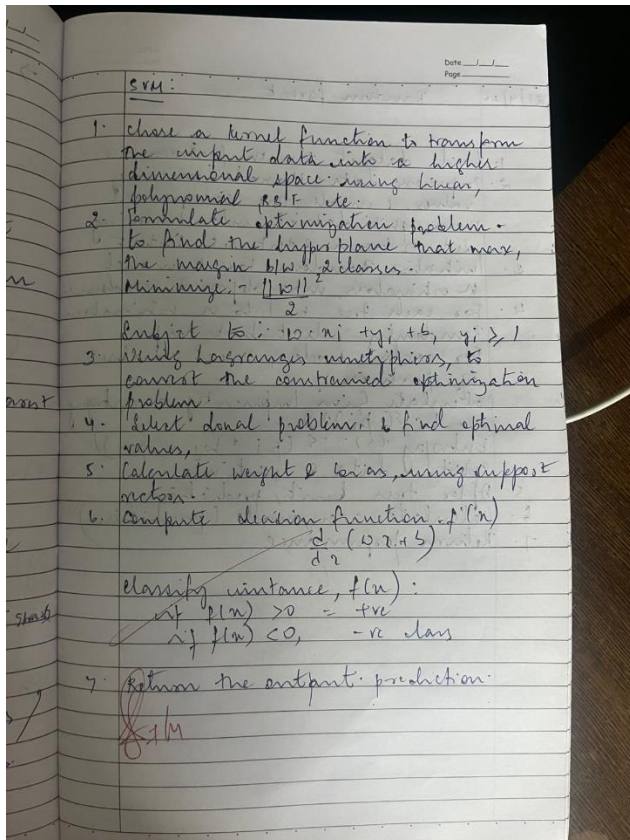 Date __/__/__
Page ________
SVM:
1. Chose a kernel function to transform
the input data into a higher
dimensional space using linear,
polynomial, RBF etc.
2. Formulate optimization problem.
to find the hyperplane that max,
the margin b/w 2 classes.
Minimize:- ||w||²
2
Subject to: w.xi + yi + b, yi ≥ 1
3. Using Lagranges multipliers, to
convert the constrained optimization
problem.
4. dual problem, & find optimal
values,
5. Calculate weight & bias, using support
vectors.
6. Compute decision function f'(x)
d/dx (w.x+b)
classify instance, f(x):
if f(x) >0 = +ve
if f(x) <0, -ve class
7. Return the output prediction.